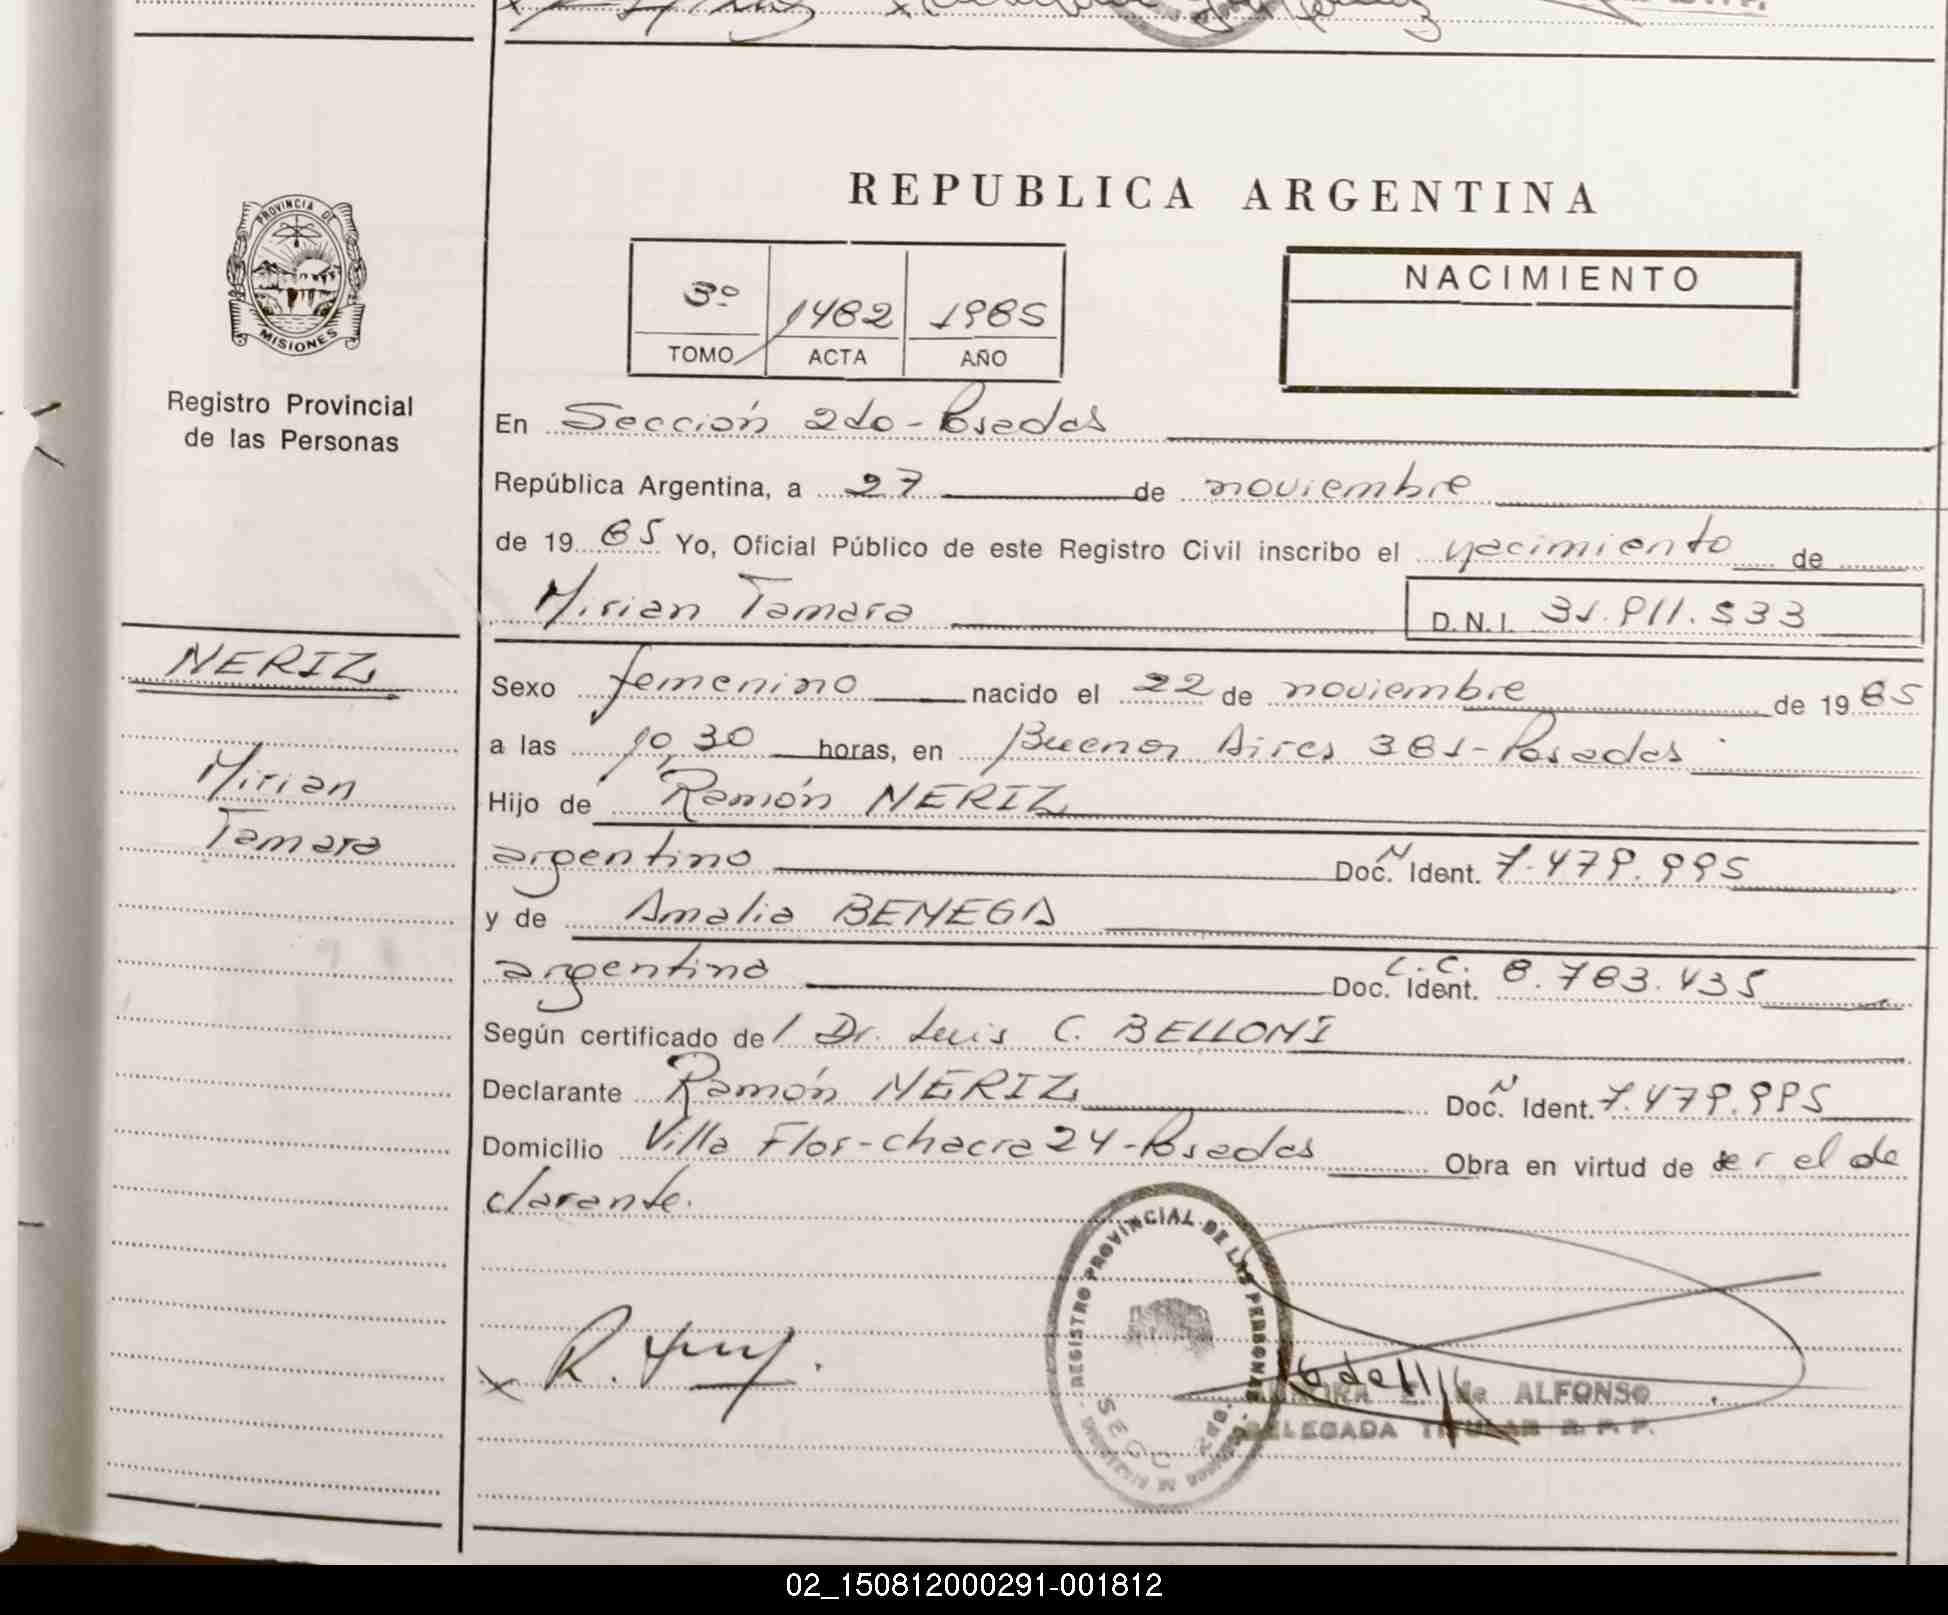 REPUBLICA ARGENTINA
PROVINCIA DE
MISIONES
Registro Provincial
de las Personas
3º 1482 1985
TOMO ACTA AÑO
NACIMIENTO
En Sección 2do - Posadas
República Argentina, a 27 de noviembre
de 19 85 Yo, Oficial Público de este Registro Civil inscribo el nacimiento de
Mirian Tamara D.N.I. 31.911.533
NERIZ
Mirian
Tamara
Sexo femenino nacido el 22 de noviembre de 19 85
a las 10,30 horas, en Buenos Aires 381 - Posadas
Hijo de Ramón NERIZ
argentino Doc. N Ident. 7.479.995
y de Amalia BENEGA
argentina Doc. L.C. Ident. 8.783.435
Según certificado de / Dr. Luis C. BELLONI
Declarante Ramón NERIZ Doc. N Ident. 7.479.995
Domicilio Villa Flor - chacra 24 - Posadas Obra en virtud de ser el de
clarante.
REGISTRO PROVINCIAL DE LAS PERSONAS
SECC. 2da.
x R.
de ALFONSO
DELEGADA TITULAR R. P. P.
02_150812000291-001812